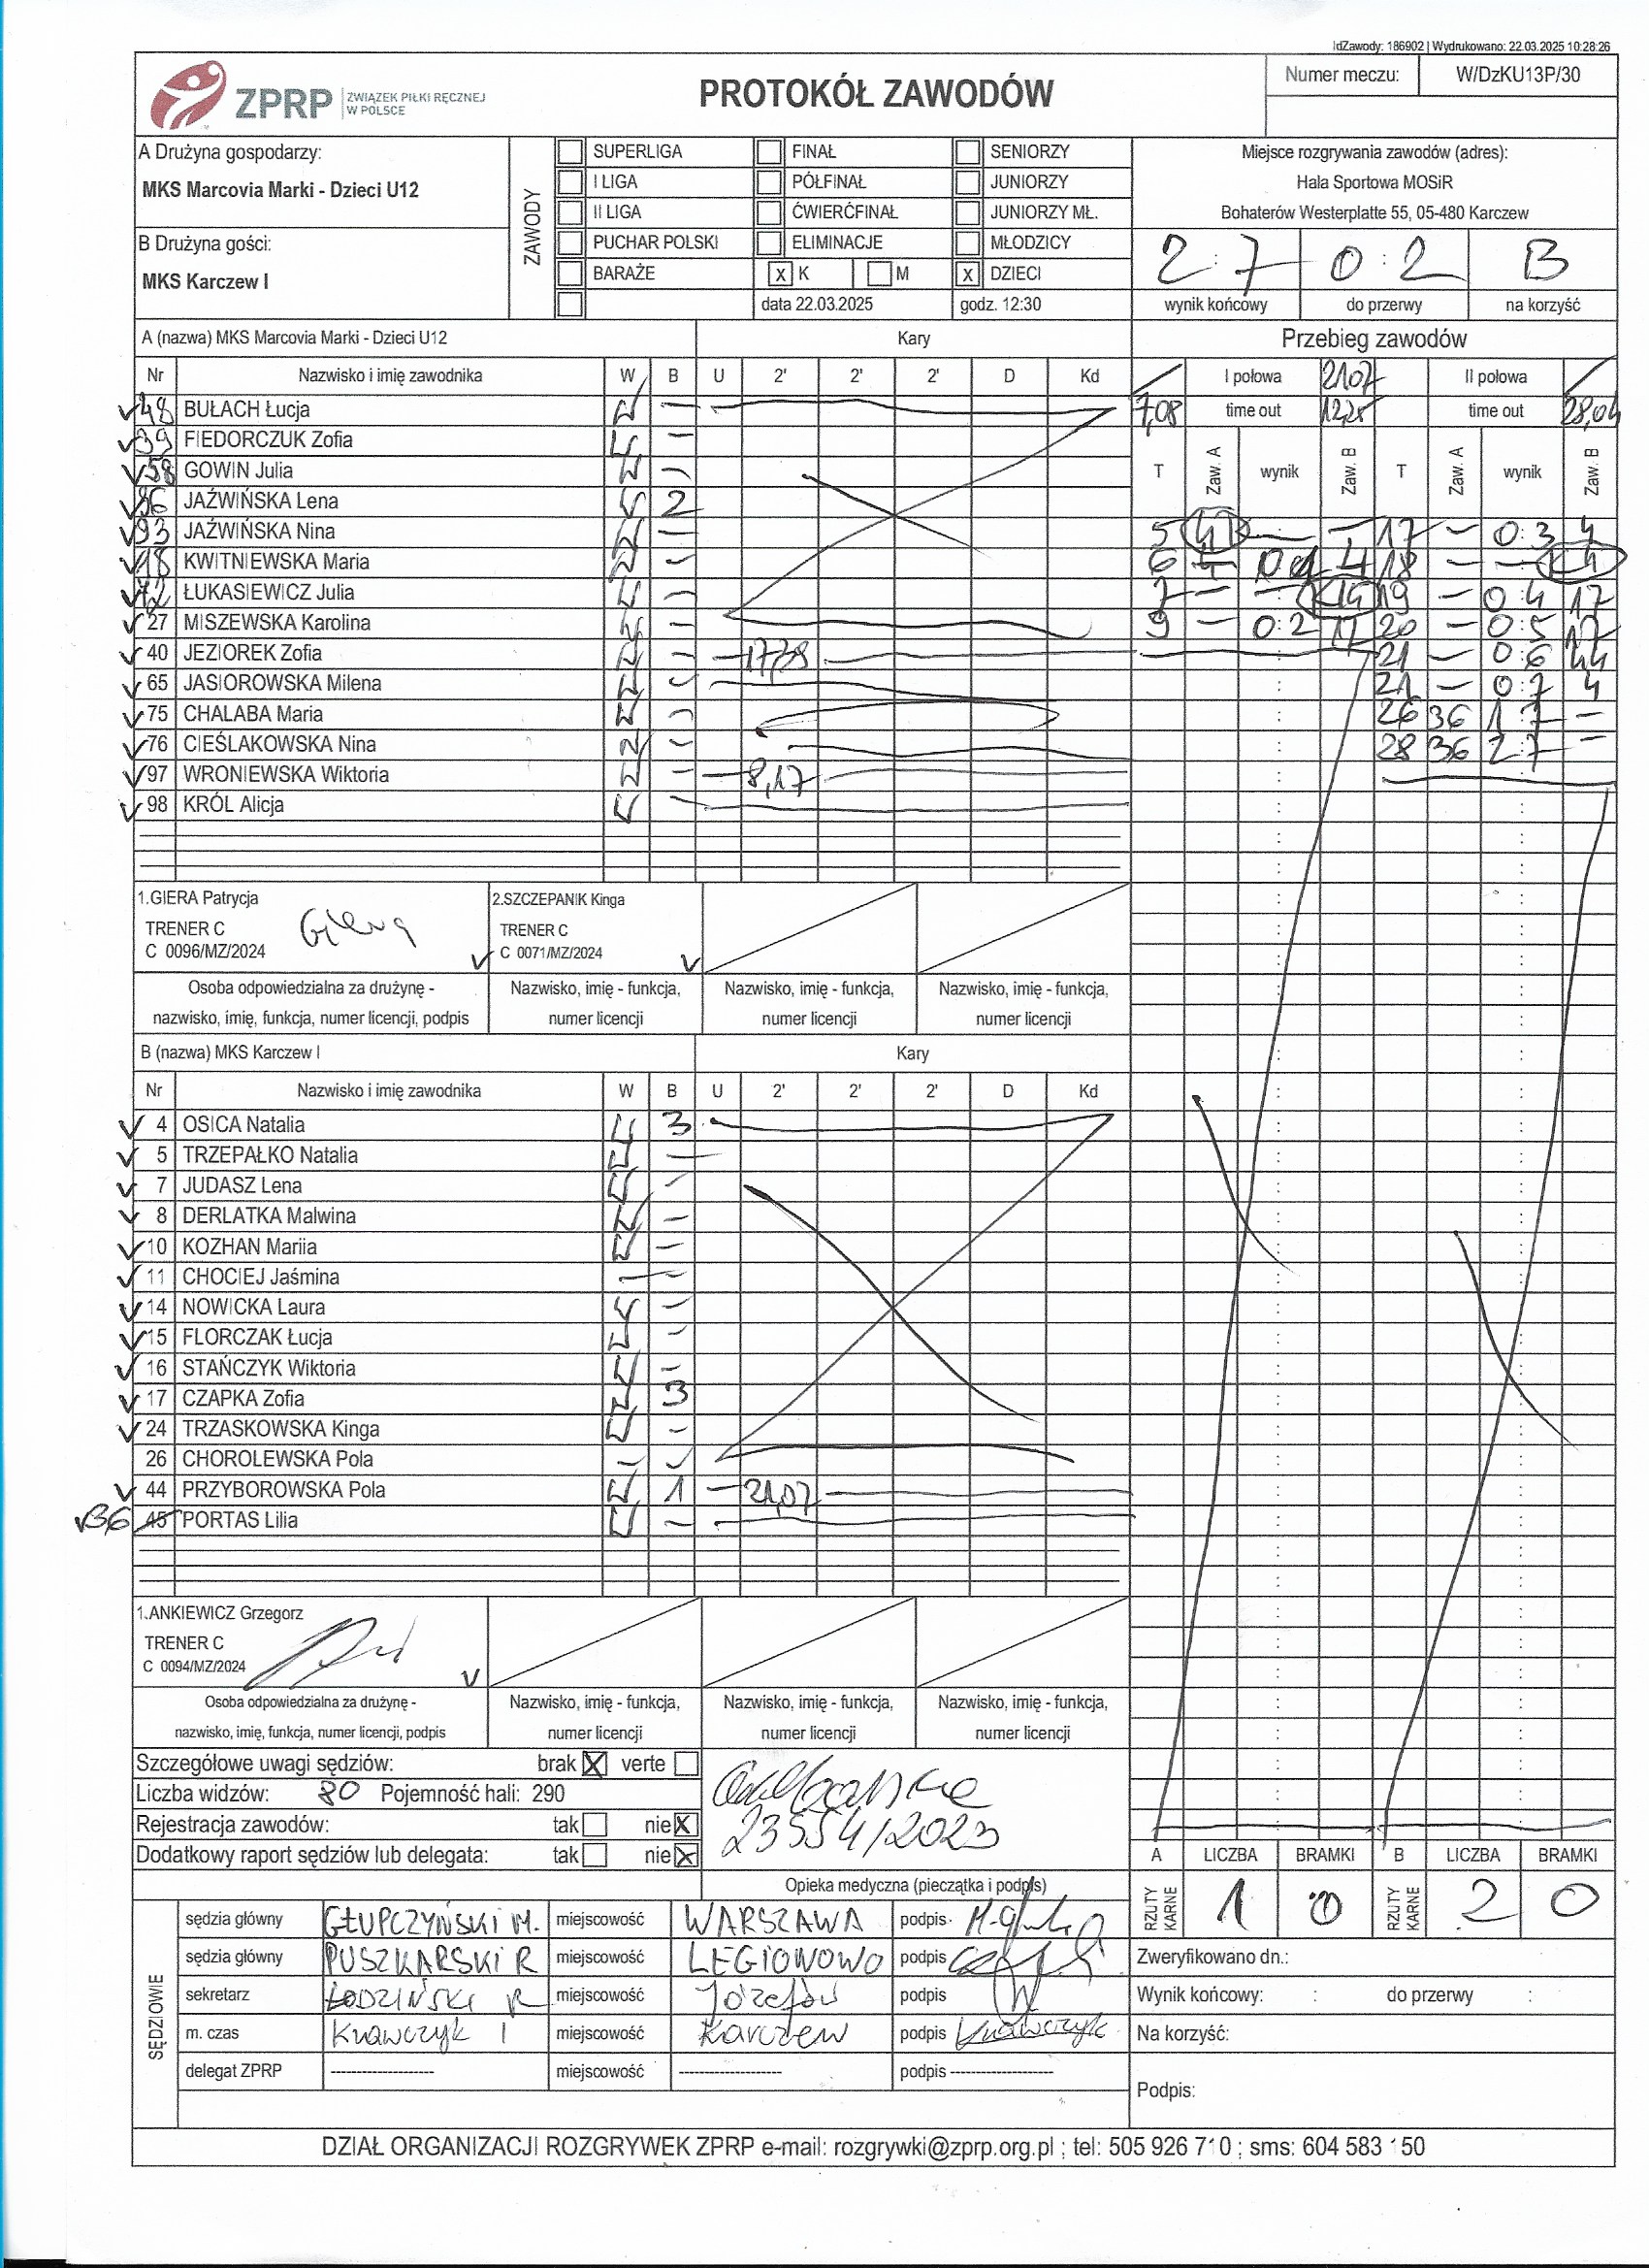 IdZawody: 186902 | Wydrukowano: 22.03.2025 10:28:26
ZPRP ZWIĄZEK PIŁKI RĘCZNEJ W POLSCE
PROTOKÓŁ ZAWODÓW
Numer meczu: W/DzKU13P/30
A Drużyna gospodarzy:
MKS Marcovia Marki - Dzieci U12
B Drużyna gości:
MKS Karczew I
ZAWODY
SUPERLIGA FINAŁ SENIORZY
I LIGA PÓŁFINAŁ JUNIORZY
II LIGA ĆWIERĆFINAŁ JUNIORZY MŁ.
PUCHAR POLSKI ELIMINACJE MŁODZICY
BARAŻE x K M x DZIECI
data 22.03.2025 godz. 12:30
Miejsce rozgrywania zawodów (adres):
Hala Sportowa MOSiR
Bohaterów Westerplatte 55, 05-480 Karczew
2:7 0:2 B
wynik końcowy do przerwy na korzyść
A (nazwa) MKS Marcovia Marki - Dzieci U12 Kary
Nr Nazwisko i imię zawodnika W B U 2' 2' 2' D Kd
48 BUŁACH Łucja
39 FIEDORCZUK Zofia
58 GOWIN Julia
JAŹWIŃSKA Lena 2
93 JAŹWIŃSKA Nina
18 KWITNIEWSKA Maria
72 ŁUKASIEWICZ Julia
27 MISZEWSKA Karolina
40 JEZIOREK Zofia
65 JASIOROWSKA Milena
75 CHALABA Maria
76 CIEŚLAKOWSKA Nina
97 WRONIEWSKA Wiktoria 8,17
98 KRÓL Alicja
Przebieg zawodów
I połowa 2107 II połowa
7,08 time out 12,25 time out 28,04
T Zaw. A wynik Zaw. B T Zaw. A wynik Zaw. B
5 17 – 0:3 4
6 4 18 –
7 – – 19 – 0:4 17
9 – 0:2 17 20 – 0:5 17
21 – 0:6 44
21 – 0:7 4
26 36 1:7 –
28 36 2:7 –
1.GIERA Patrycja
TRENER C
C 0096/MZ/2024
Giera
2.SZCZEPANIK Kinga
TRENER C
C 0071/MZ/2024
Osoba odpowiedzialna za drużynę -
nazwisko, imię, funkcja, numer licencji, podpis
Nazwisko, imię - funkcja,
numer licencji
Nazwisko, imię - funkcja,
numer licencji
Nazwisko, imię - funkcja,
numer licencji
B (nazwa) MKS Karczew I Kary
Nr Nazwisko i imię zawodnika W B U 2' 2' 2' D Kd
4 OSICA Natalia 3
5 TRZEPAŁKO Natalia
7 JUDASZ Lena
8 DERLATKA Malwina
10 KOZHAN Mariia
11 CHOCIEJ Jaśmina
14 NOWICKA Laura
15 FLORCZAK Łucja
16 STAŃCZYK Wiktoria
17 CZAPKA Zofia 3
24 TRZASKOWSKA Kinga
26 CHOROLEWSKA Pola
44 PRZYBOROWSKA Pola 1 21,07
36 45 PORTAS Lilia
1.ANKIEWICZ Grzegorz
TRENER C
C 0094/MZ/2024
Osoba odpowiedzialna za drużynę -
nazwisko, imię, funkcja, numer licencji, podpis
Nazwisko, imię - funkcja,
numer licencji
Nazwisko, imię - funkcja,
numer licencji
Nazwisko, imię - funkcja,
numer licencji
Szczegółowe uwagi sędziów: brak X verte
Liczba widzów: 80 Pojemność hali: 290
Rejestracja zawodów: tak nie X
Dodatkowy raport sędziów lub delegata: tak nie X
23554/2023
Opieka medyczna (pieczątka i podpis)
A LICZBA BRAMKI B LICZBA BRAMKI
RZUTY KARNE 1 0 RZUTY KARNE 2 0
SĘDZIOWIE
sędzia główny GŁUPCZYŃSKI M. miejscowość WARSZAWA podpis
sędzia główny PUSZKARSKI R miejscowość LEGIONOWO podpis
sekretarz ŁODZIŃSKI R miejscowość Józefów podpis
m. czas Krawczyk I miejscowość Karczew podpis Krawczyk
delegat ZPRP --------------------- miejscowość --------------------- podpis ---------------------
Zweryfikowano dn.:
Wynik końcowy: : do przerwy :
Na korzyść:
Podpis:
DZIAŁ ORGANIZACJI ROZGRYWEK ZPRP e-mail: rozgrywki@zprp.org.pl ; tel: 505 926 710 ; sms: 604 583 150